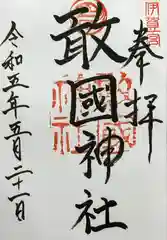 伊賀一宮
奉拝
敢國神社
令和五年五月二十一日